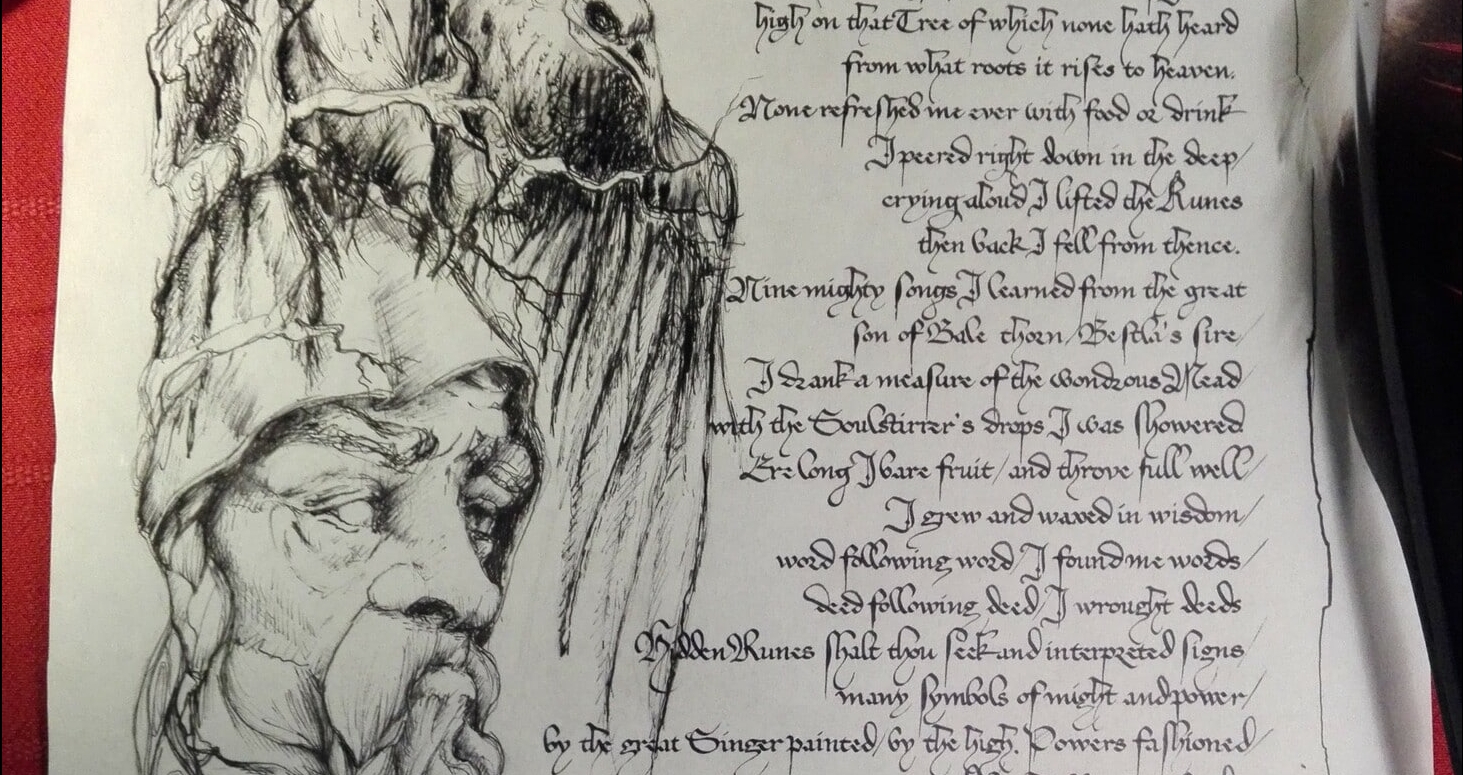 high on that Tree of which none hath heard
from what roots it rises to heaven.
None refreshed me ever with food or drink
I peered right down in the deep/
crying aloud I lifted the Runes
then back I fell from thence.
Nine mighty songs I learned from the great
son of Bale thorn/ Bestla's sire/
I drank a measure of the wondrous Mead
with the Soulstirrer's drops I was showered
Ere long I bare fruit/ and throve full well/
I grew and waxed in wisdom/
word following word/ I found me words/
deed following deed/ I wrought deeds
Hidden Runes shalt thou seek and interpreted signs/
many symbols of might and power/
by the great Singer painted/ by the high. Powers fashioned/